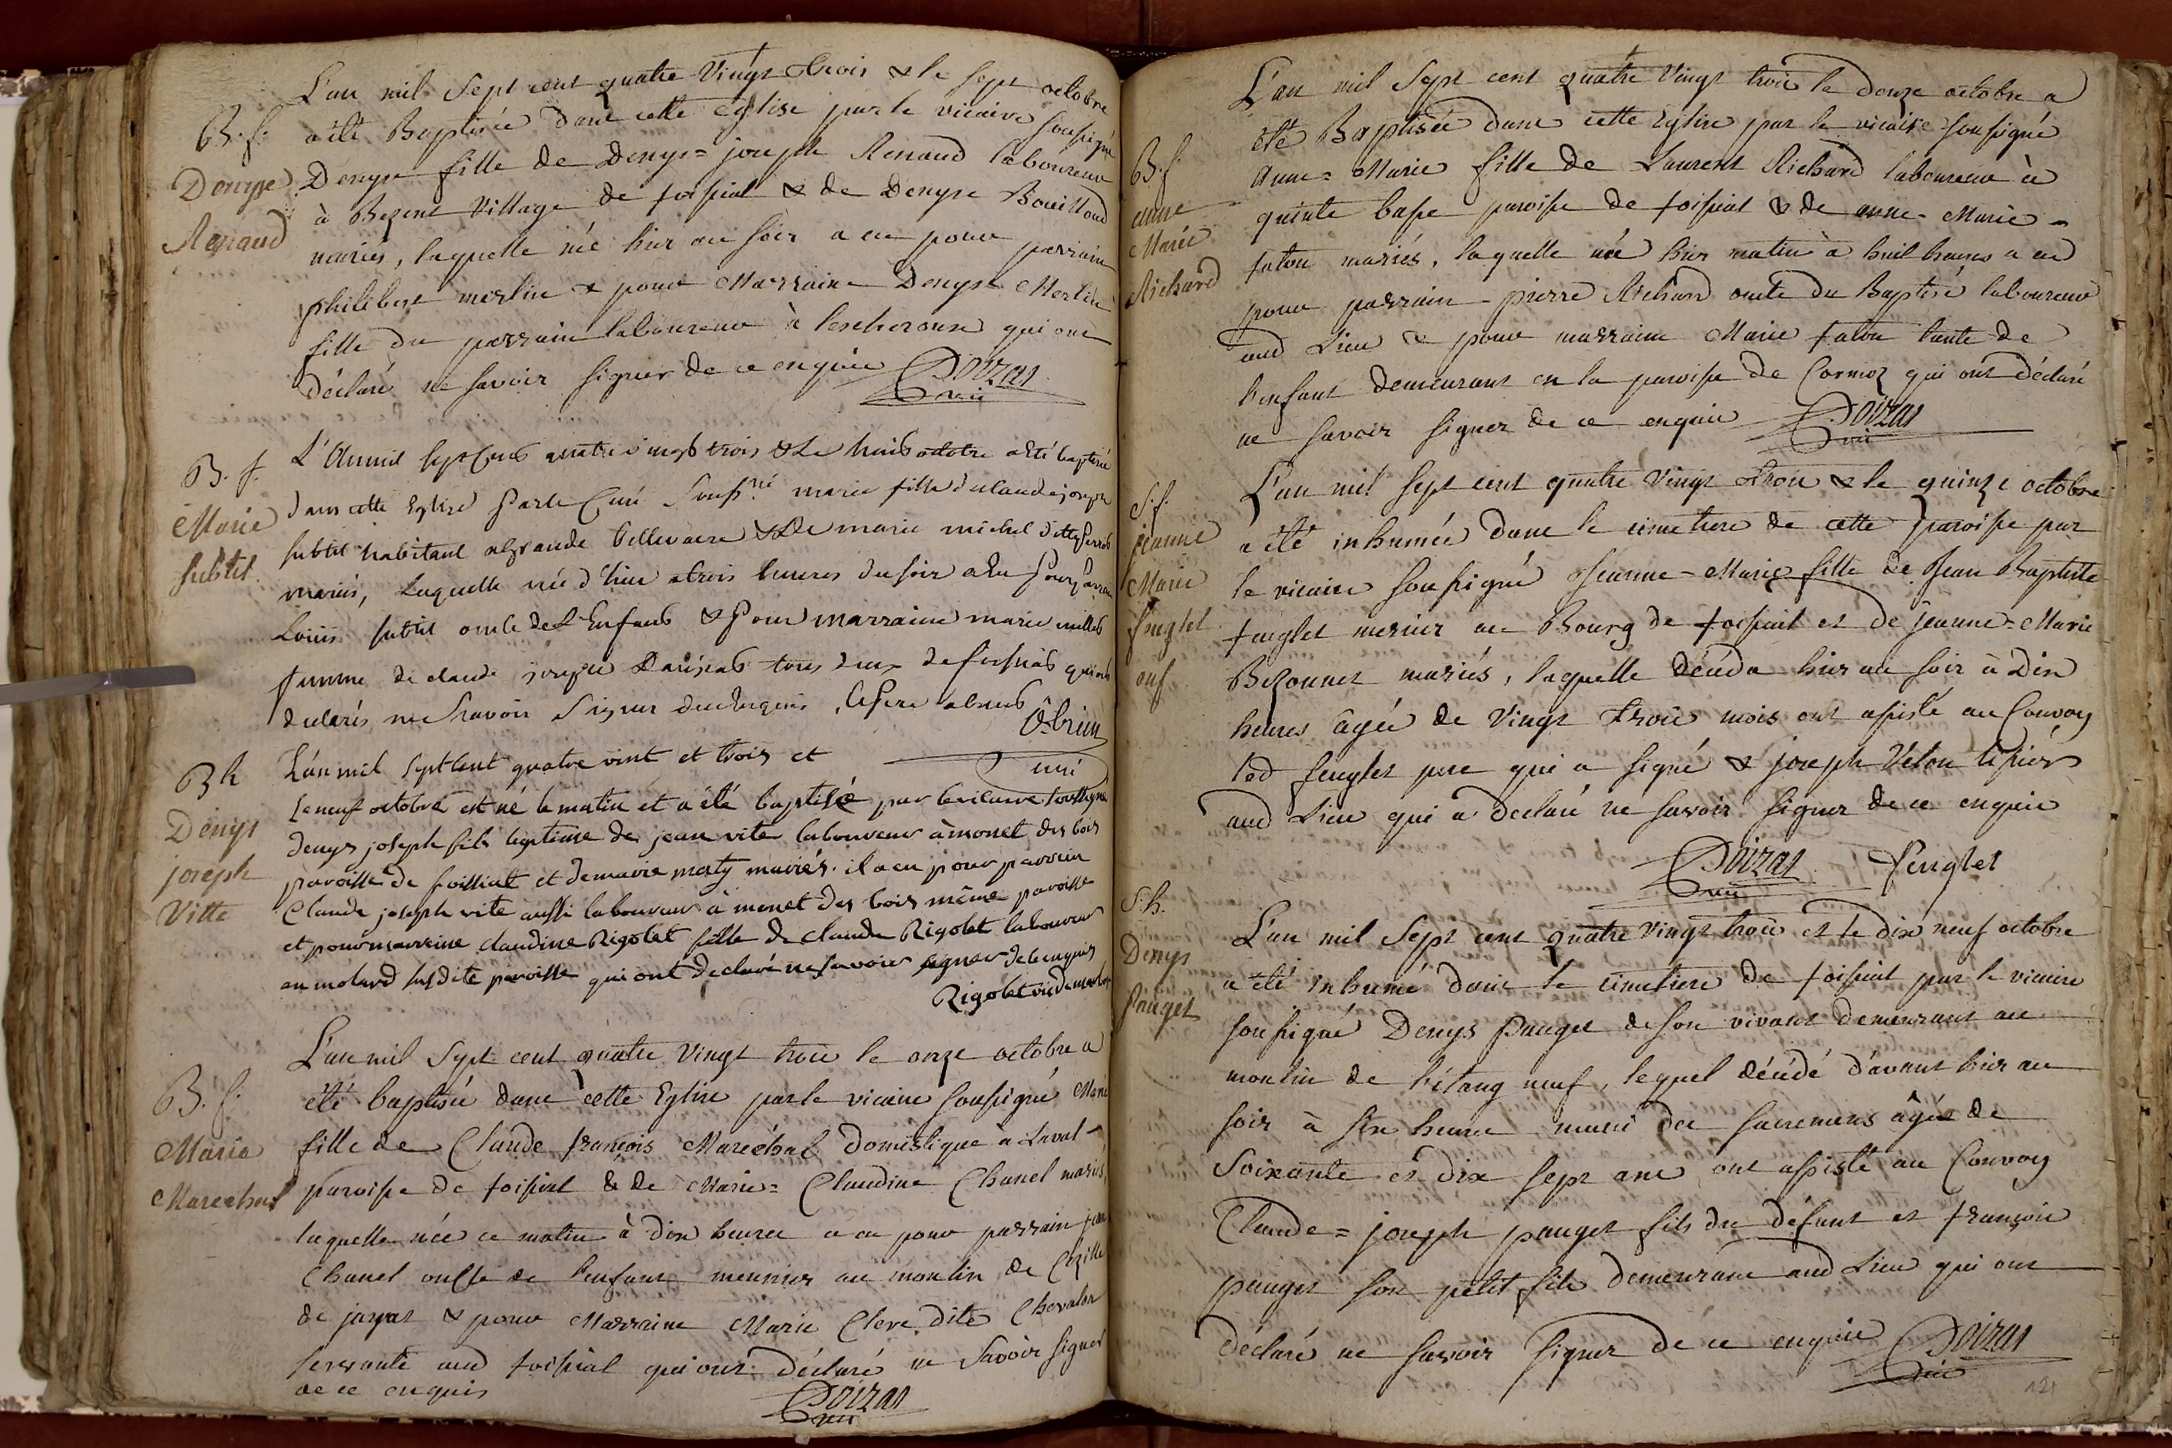 L'an mil Sept cent quatre Vingt trois & le Sept octobre
B. f. a été Baptisée dans cette Eglise par le vicaire soussigné
Denyse Denyse fille de Denys = joseph Renaud laboureur
Renaud à Bezent Village de foissiat & de Denyse Bouilloud
mariés, laquelle née hier au soir a eu pour parrain
philibert merlin & pour Marraine Denyse Merlin
fille du parrain laboureur à qui ont
déclaré ne savoir signer de ce enquis Doizan
vic
B. f. L'An mil sept Cens quatre vingts trois & Le huit octobre a Eté baptisée
Marie dans cette Eglise Par le Curé Souss.né marie fille de claude joseph
subtil subtil habitant a grande villevaere & De marie michel
mariés, Laquelle née d'hier a trois heures du soir a Eu Pour Parrain
Louis subtil oncle de L'Enfant & Pour marraine marie millet
femme de claude joseph tous deux de foissiat qui ont
declarés ne Scavoir Signer de ce Enquis, le Pere absent
Ôbrien
curé
B h L'an mil sept cent quatre vint et trois et
Denys le neuf octobre est né le matin et a été baptisé par le vicaire soussigné
joseph denys joseph fils legitime de jean vite laboureur à monet des bois
Vitte paroisse de foissiat et de marie mariés. il a eu pour parrain
Claude joseph vite aussi laboureur à monet des bois même paroisse
et pour marraine claudine Rigolet fille de claude Rigolet laboureur
au molard susdite paroisse qui ont declaré ne savoir signer de ce enquis
Rigolet
L'an mil Sept cent quatre Vingt trois le onze octobre a
B. f. été baptisée dans cette Eglise par le vicaire soussigné Marie
Marie fille de Claude françois Maréchal domestique à Laval
Marechal paroisse de foissiat & de Marie = Claudine Chanel mariés,
laquelle née ce matin à dix heures a eu pour parrain jean
Chanel oncle de l'enfant meunier au moulin de Cezille
de jayat & pour Marraine Marie Clere dite Chevalon
servante aud foissiat qui ont déclaré ne Savoir signer
de ce enquis Doizan
vic
L'an mil Sept cent quatre Vingt trois le douze octobre a
B. f été Baptisée dans cette Eglise par le vicaire soussigné
anne Anne = Marie fille de Laurent Richard laboureur à
Marie quinte basse paroisse de foissiat & de anne = Marie
Richard faton mariés, laquelle née hier matin à huit heures a eu
pour parrain pierre Richard oncle du Baptisé laboureur
aud Lieu & pour marraine Marie faton tante de
l'enfant demeurant en la paroisse de Cormoz qui ont déclaré
ne savoir signer de ce enquis Doizan
vic
S. f. L'an mil Sept cent quatre Vingt trois & le quinze octobre
jeanne a été inhumée dans le cimetiere de cette paroisse par
Marie le vicaire soussigné Jeanne = Marie fille de Jean Baptiste
fenglet fenglet au Bourg de foissiat et de Jeanne = Marie
enf. Bezonnet mariés, laquelle décéda hier au soir à Dix
heures âgée de Vingt trois mois ont assisté au Convoy
led fenglet pere qui a signé & joseph Veton tissier
aud Lieu qui a déclaré ne savoir signer de ce enquis
Doizan fenglet
vic
S. h. L'an mil Sept cent quatre vingt trois et le dix neuf octobre
Denys a été inhumé dans le cimetiere de foissiat par le vicaire
Pauget soussigné Denys Pauget de son vivant demeurant au
moulin de l'étang neuf, lequel décédé d'avant hier au
soir à six heures muni des sacremens âgé de
Soixante et dix sept ans, ont assisté au Convoy
Claude = joseph pauget fils du défunt et françois
pauget son petit fils demeurans aud Lieu qui ont
déclaré ne savoir signer de ce enquis Doizan
vic
121